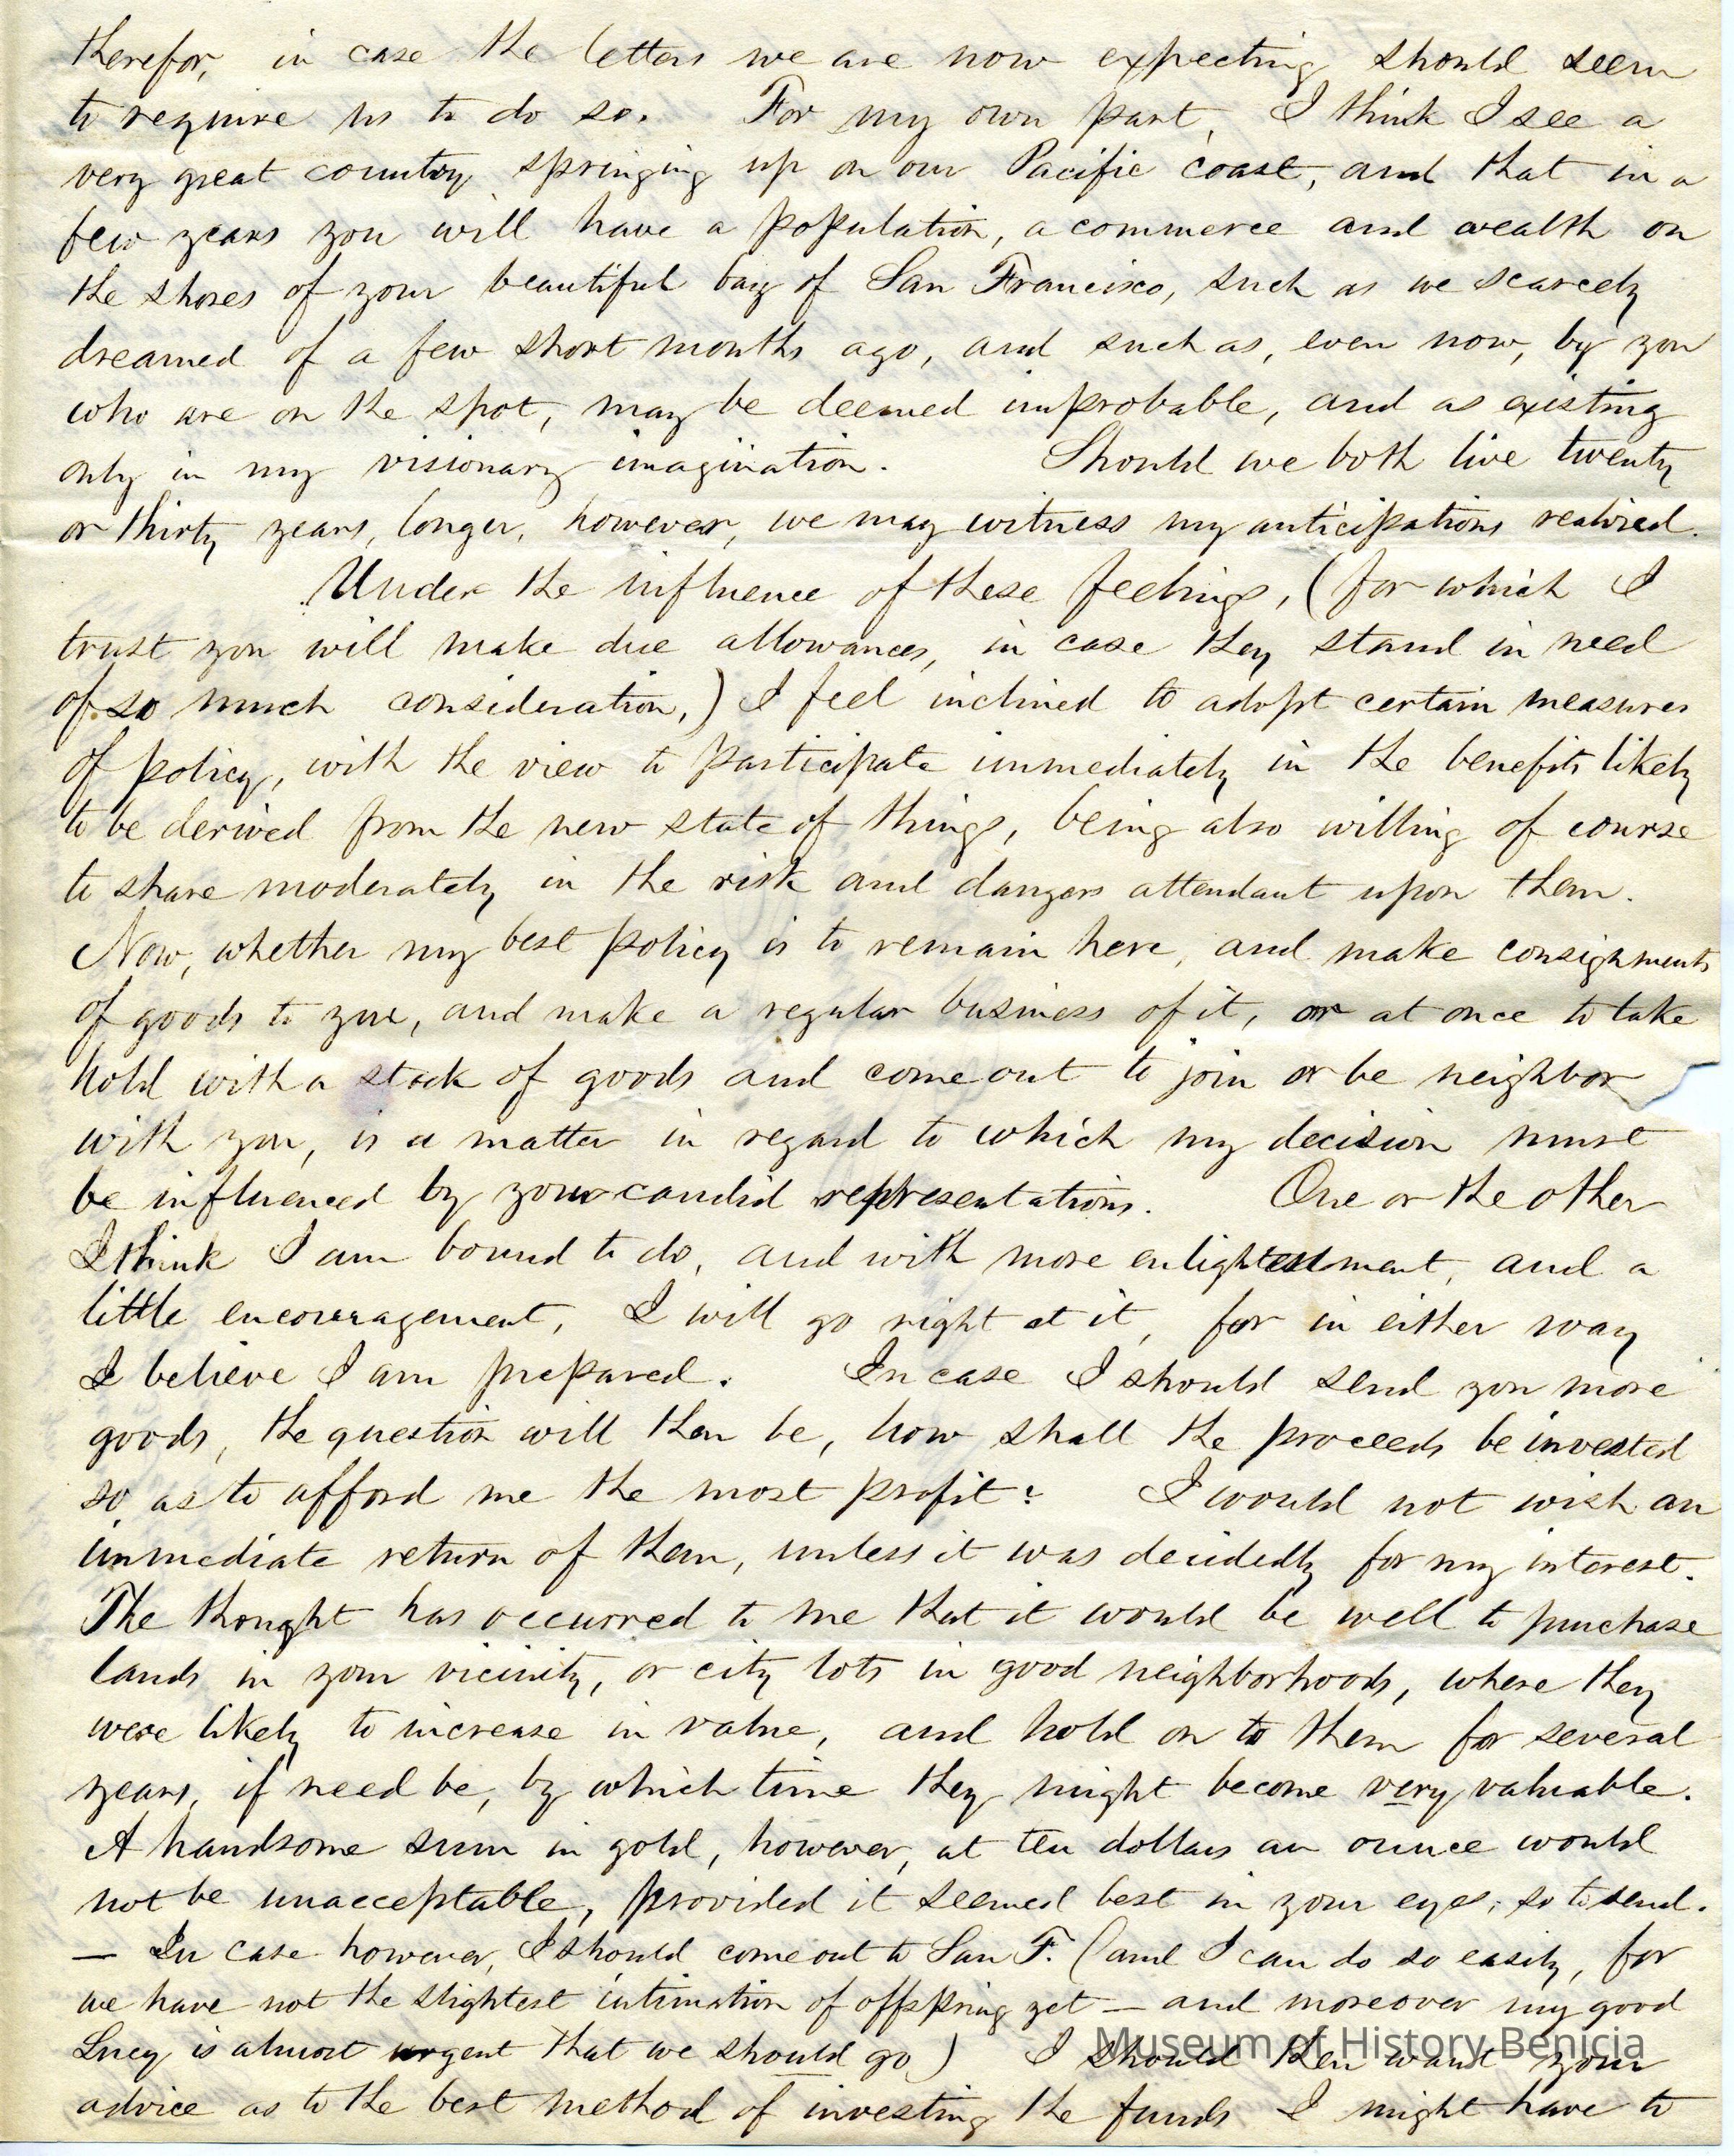 therefor, in case the letters we are now expecting should seem
to require us to do so. For my own part, I think I see a
very great country springing up on our Pacific coast, and that in a
few years you will have a population, a commerce and wealth on
the shores of your beautiful bay of San Francisco, such as we scarcely
dreamed of a few short months ago, and such as, even now, by you
who are on the spot, may be deemed improbable, and as existing
only in my visionary imagination. Should we both live twenty
or thirty years, longer, however, we may witness my anticipations realized.
Under the influence of these feelings, (for which I
trust you will make due allowances, in case they stand in need
of so much consideration,) I feel inclined to adopt certain measures
of policy, with the view to participate immediately in the benefits likely
to be derived from the new state of things, being also willing of course
to share moderately in the risk and dangers attendant upon them.
Now, whether my best policy is to remain here, and make consignments
of goods to you, and make a regular business of it, or at once to take
hold with a stock of goods and come out to join or be neighbor
with you, is a matter in regard to which my decision must
be influenced by your candid representations. One or the other
I think I am bound to do, and with more enlightenment, and a
little encouragement, I will go right at it, for in either way
I believe I am prepared. In case I should send you more
goods, the question will then be, how shall the proceeds be invested
so as to afford me the most profit? I would not wish an
immediate return of them, unless it was decidedly for my interest.
The thought has occurred to me that it would be well to purchase
lands in your vicinity, or city lots in good neighborhoods, where they
were likely to increase in value, and hold on to them for several
years, if need be, by which time they might become very valuable.
A handsome sum in gold, however, at ten dollars an ounce would
not be unacceptable, provided it seemed best in your eyes, so to send.
— In case however, I should come out to San F. (and I can do so easily, for
we have not the slightest intimation of offspring yet — and moreover my good
Lucy is almost urgent that we should go) I should then want your
advice as to the best method of investing the funds I might have to
Museum of History Benicia